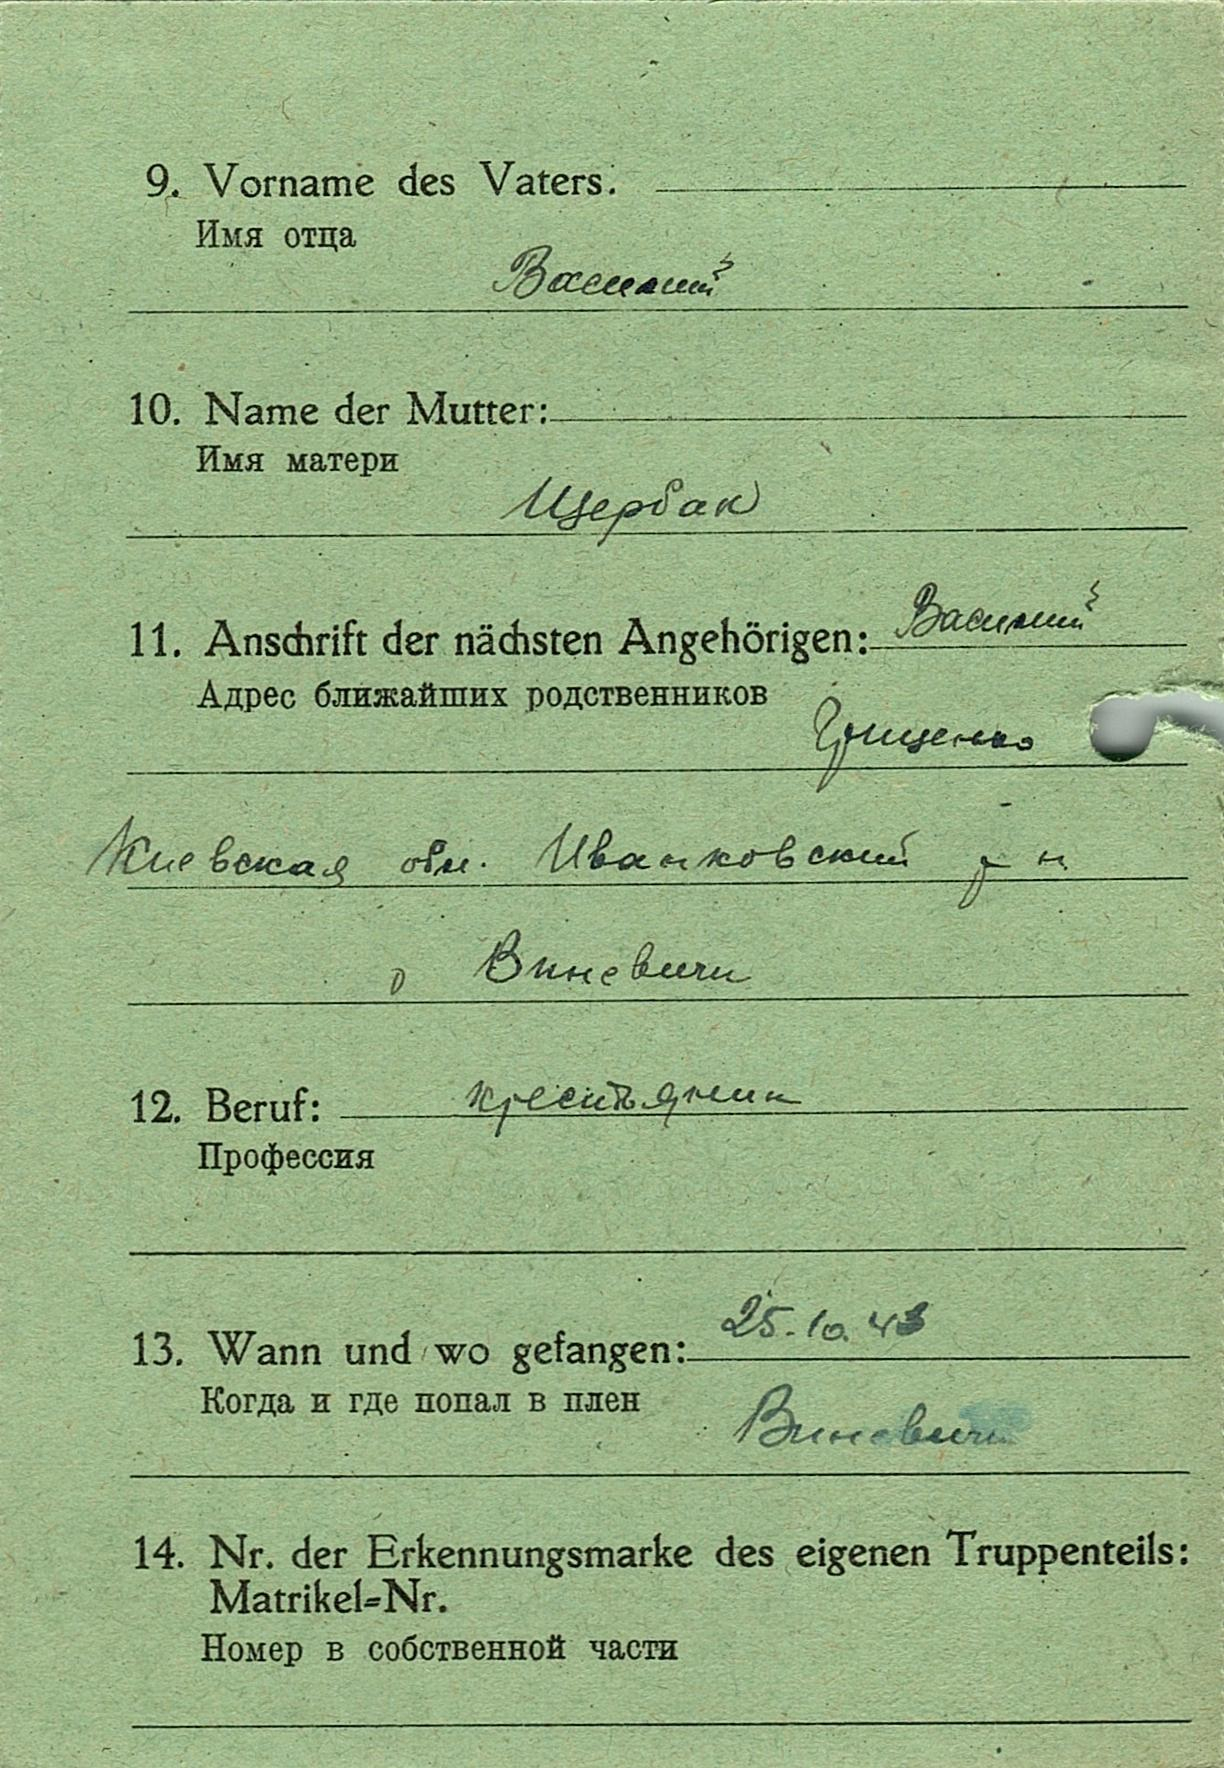 9. Vorname des Vaters:
Имя отца
Василий
10. Name der Mutter:
Имя матери
Щербак
11. Anschrift der nächsten Angehörigen: Василий
Адрес ближайших родственников
Грищенко
Киевская обл. Иванковский р н
Виневичи
12. Beruf: крестьянин
Профессия
13. Wann und wo gefangen: 25.10.43
Когда и где попал в плен
Виневичи
14. Nr. der Erkennungsmarke des eigenen Truppenteils:
Matrikel-Nr.
Номер в собственной части